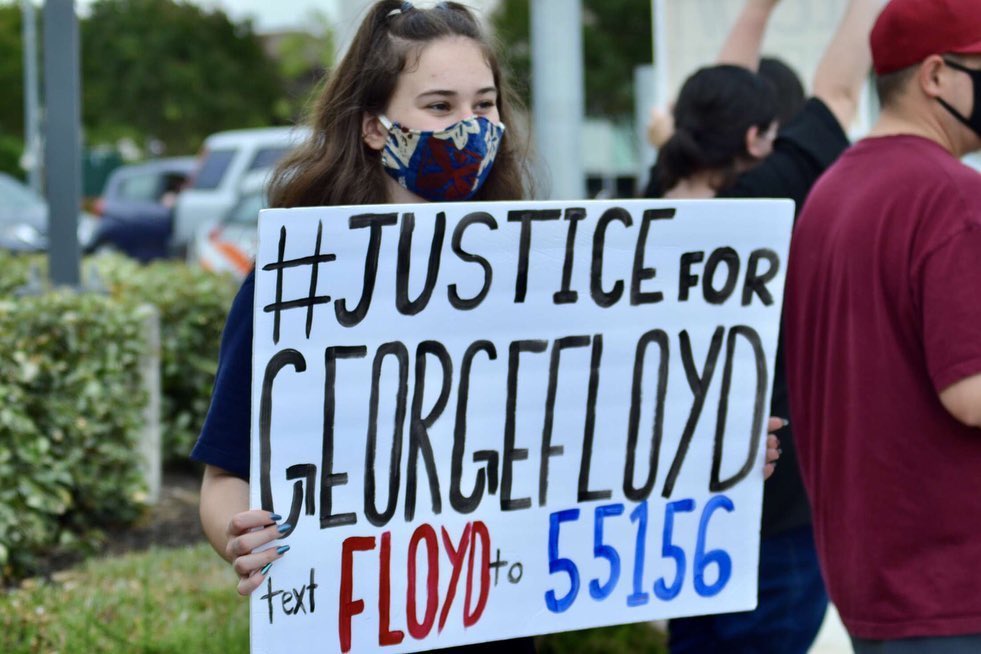 #JUSTICE FOR
GEORGEFLOYD
text FLOYD to 55156